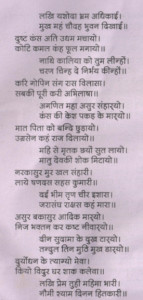 लखि यशोदा भ्रम अधिकाई।
मुख महं चौदह भुवन दिखाई॥
दुष्ट कंस अति उधम मचायो।
कोटि कमल कहं फूल मंगायो॥
नाथि कालिया को तुम लीन्हीं।
चरण चिन्ह दै निर्भय कीन्हीं॥
करि गोपिन संग रास बिलासा।
सबकी पूरी करी अभिलाषा॥
अगणित महा असुर संहार्यो।
कंस की केश पकड़ के मार्यो॥
मात पिता को बन्दि छुड़ायो।
उग्रसेन कहं राज दिलायो॥
महि से मृतक छयों सुत लायो।
मातु देवकी शोक मिटायो॥
नरकासुर मुर खल संहारी।
लाये षणदस सहस कुमारी॥
दई भीम तृण चीर इशारा।
जरासंध राक्षस कहं मारा॥
असुर बकासुर आदिक मार्यो।
निज भक्तन कर कष्ट नीवार्यो॥
दीन सुदामा के दुख टार्यो।
तन्दुल तिन मुठि मुख डार्यो॥
दुर्योधन के त्याग्यो मेवा।
कियो विदुर घर शाक कलेवा॥
लखि प्रेम तुहीं महिमा भारी।
नौमी श्याम दिनन हितकारी॥